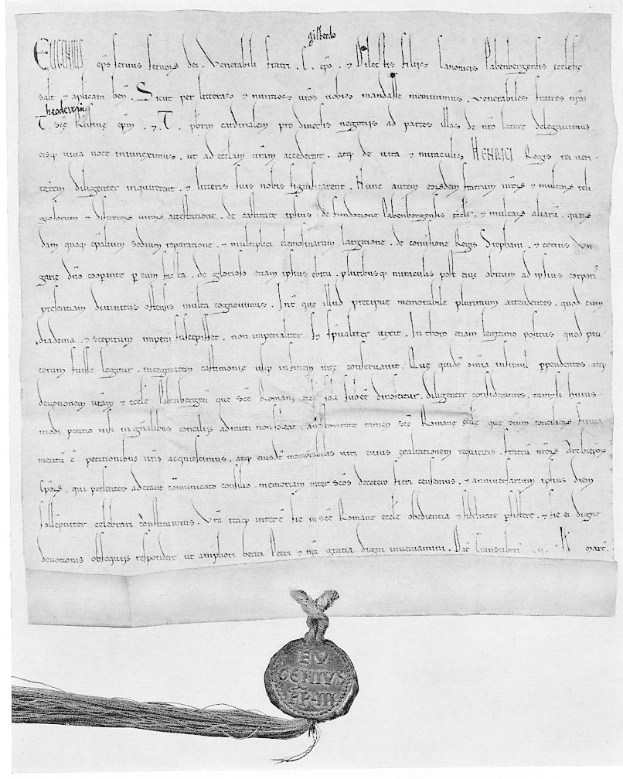 EUGENIUS eps servus servoꝝ dei. Venerabili fratri . epo. & Dilectis filiis canonicis Babenbergensis ecclesie
salt & aplicam ben. Sicut per litteras & nuntios vros nobis mandasse meminimus. venerabiles fratres nros
T. sce Rufine epm. & T. pbrm cardinalem pro diversis negotiis ad partes illas de nro latere delegavimus
eisq viva voce iniunximus, ut ad ecclam vram accederent, atq de vita & miraculis HENRICI Regis rei veri
tatem diligenter inquirerent, & litteris suis nobis significarent. Nunc autem eorṡdem fratrum nroꝝ & multoꝝ reli
giosorum & discretoꝝ viroꝝ attestatione, de castitate ipsius, de fundatione Babenbergensis eccle, & multaꝝ aliarū, quarū
dam quoq epaliũ sedium reparatione, & multiplici elemosinarum largitione, de conversione Regis Stephani, & totius Un
garie dno coopante p eum facta, de glorioso etiam ipsius obitu, pluribusq miraculis post eius obitum ad ipsius corporis
presentiam divinitus ostensis multa cognovimus. Int que illud precipue memorabile plurimum attendentes, quod cum
diadema & sceptrum imperii suscepisset, non imperialiter s; spualiter vixit. In thoro etiam legitimo positus quod pau
corum fuisse legitur, integritatem castimonie usq in finem vite conservavit. Que quidē omia insimul ppendentes, atq
devotionem vram & eccle Babenbergen que sce Romane eccle soli subeē dinoscitur, diligenter considerantes, tametsi huius
modi petitio nisi in gñalibus conciliis admitti non soleat, auctoritate tamen sce Romane eccle que omium conciliorū firma
mentū ē, petitionibus vris acquiescimus, atq eiusdē memorabilis viri cuius exaltationem requiritis, fratrū nroꝝ Archiepos
eposꝝ, qui presentes aderant cōmunicato consilio, memoriam inter scos decetero fieri censemus, & anniversarium ipsius diem
sollepniter celebrari constituimus. Vra itaq interē sic in sce Romane eccle obedientia & fidelitate psistere, & sic ei digne
devotionis obsequiis respondere ut ampliori beati Petri & nra gratia digni inveniamini. Dat Transtiberi .ii. Id marc.
EU
GENIUS
PP·III